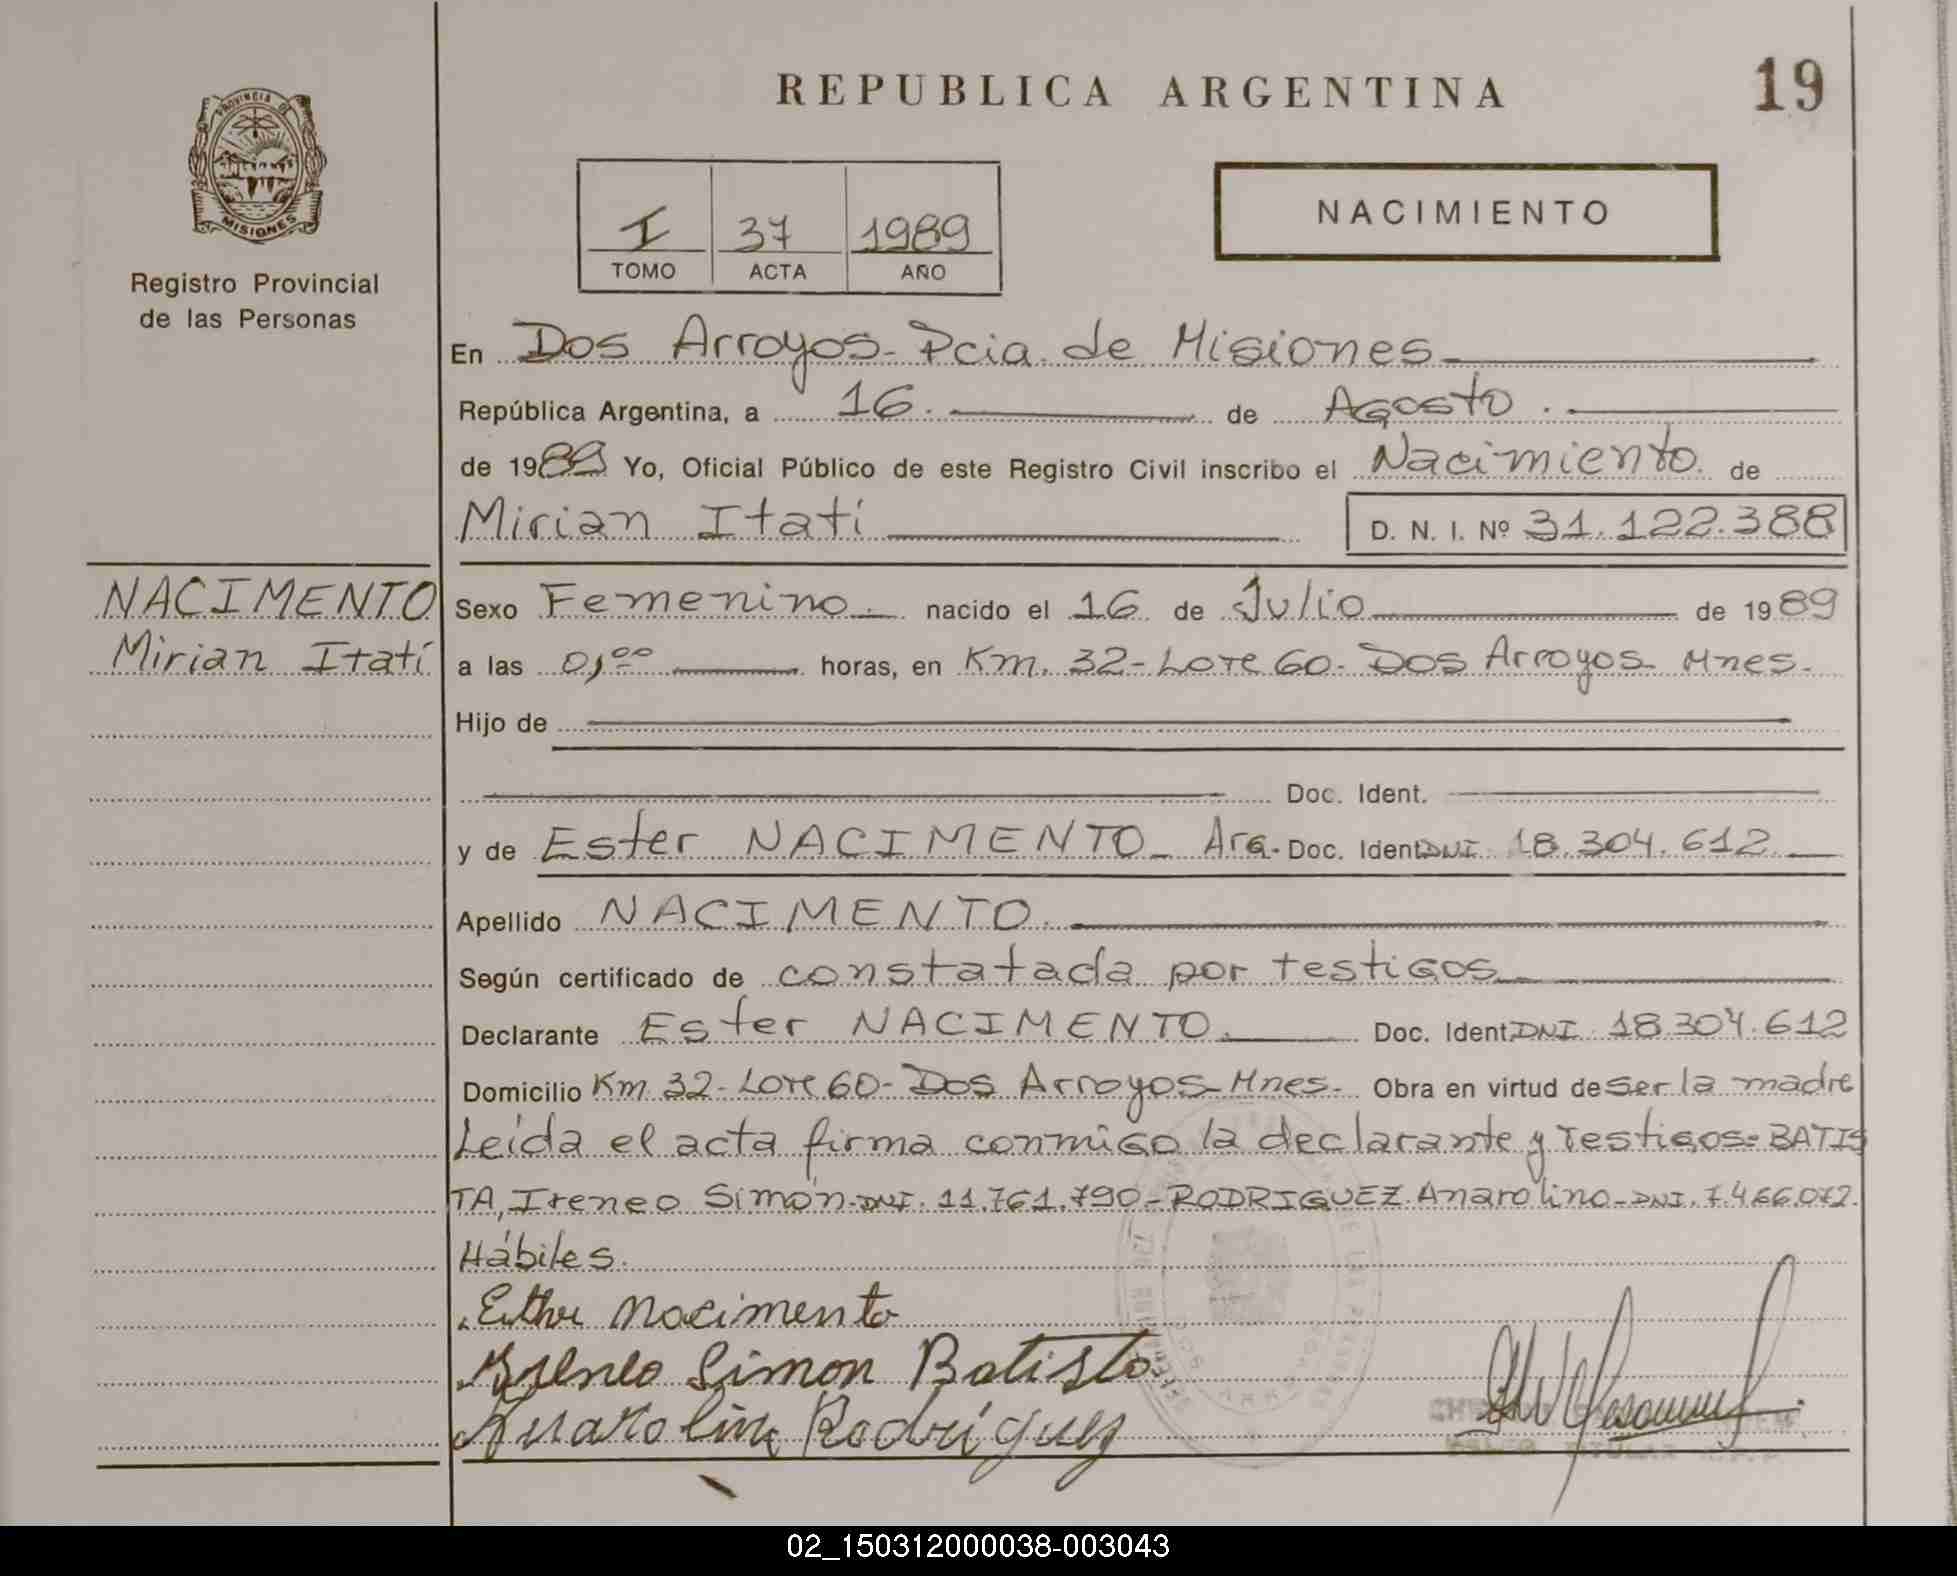 REPUBLICA ARGENTINA
19
PROVINCIA DE
MISIONES
Registro Provincial
de las Personas
I 37 1989
TOMO ACTA AÑO
NACIMIENTO
En Dos Arroyos- Pcia. de Misiones
República Argentina, a 16. de Agosto.
de 1989 Yo, Oficial Público de este Registro Civil inscribo el Nacimiento. de
Mirian Itatí D. N. I. Nº 31.122.388
NACIMENTO
Mirian Itatí
Sexo Femenino. nacido el 16 de Julio de 1989
a las 01,00 horas, en Km. 32-Lote 60- Dos Arroyos- Mnes.
Hijo de
Doc. Ident.
y de Ester NACIMENTO- Arg. Doc. Ident. DNI 18.304.612
Apellido NACIMENTO.
Según certificado de constatada por testigos
Declarante Ester NACIMENTO. Doc. Ident. DNI 18.304.612
Domicilio Km 32-Lote 60-Dos Arroyos-Mnes. Obra en virtud de ser la madre
Leída el acta firma conmigo la declarante y testigos: BATIS
TA, Ireneo Simón-DNI. 11.761.790-RODRIGUEZ Anarolino-DNI. 7.466.072.
Hábiles.
Esther Nacimento
Ireneo Simon Batista
Anarolino Rodríguez
02_150312000038-003043